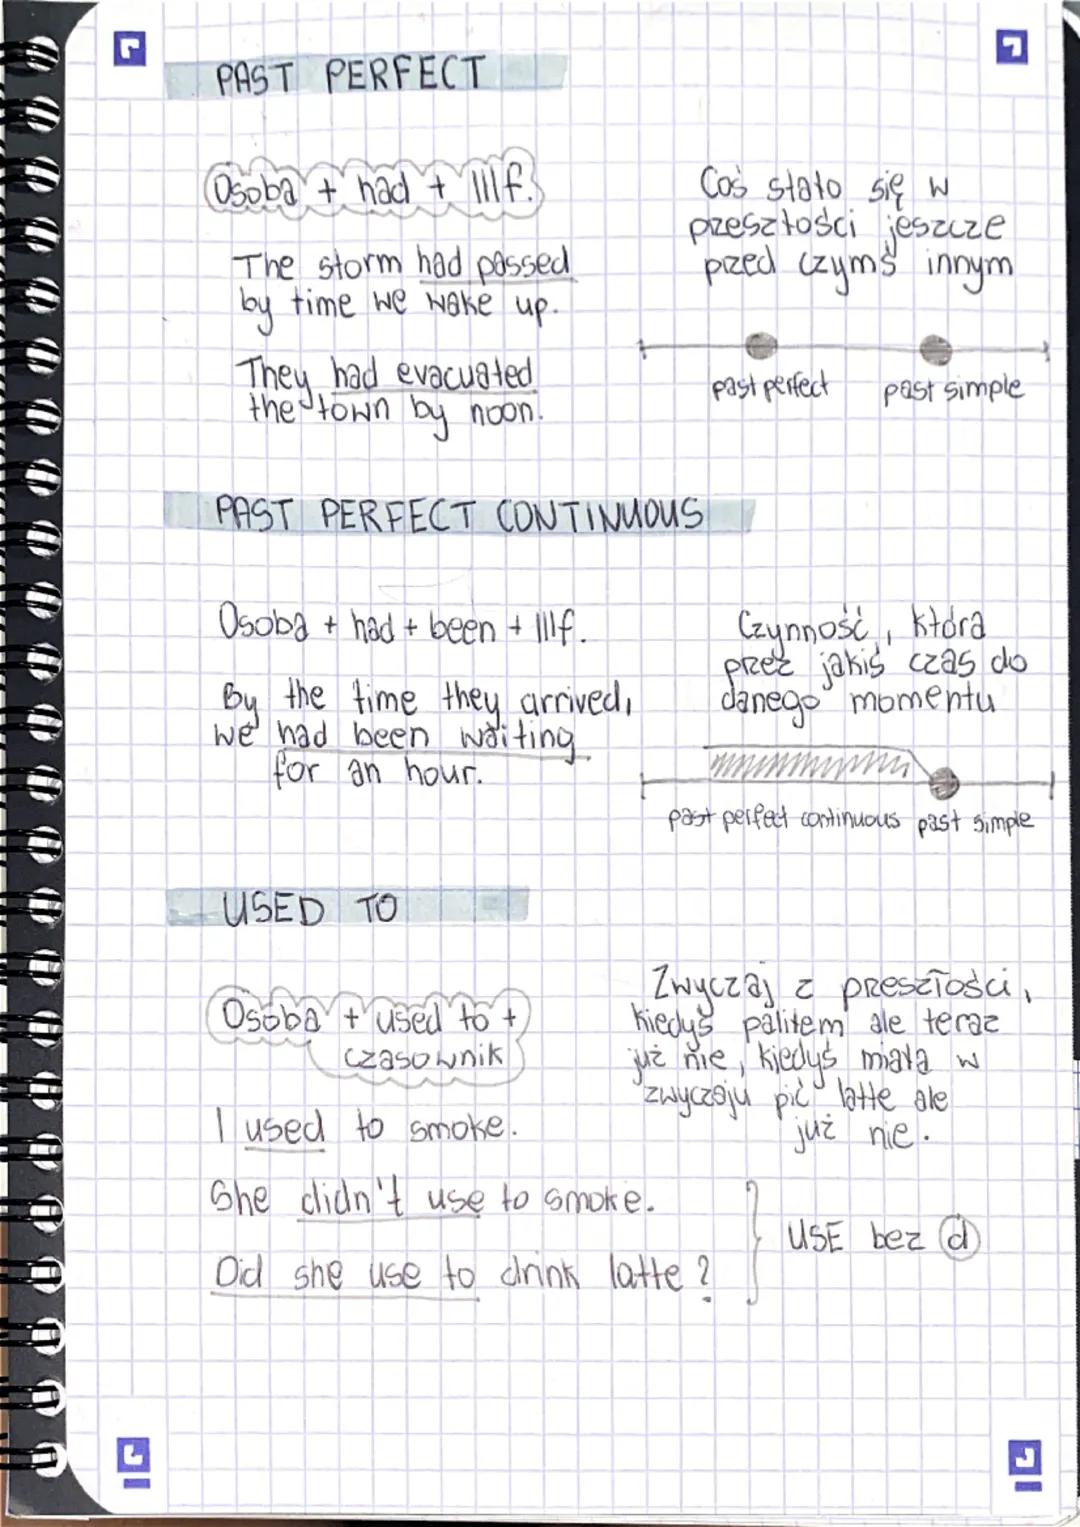 PAST PERFECT
Osoba + had + IIIf.
The storm had passed
by time we wake up.
They had evacuated
the town by noon.
Coś stało się w
przeszłości jeszcze
przed czymś innym
past perfect past simple
PAST PERFECT CONTINUOUS
Osoba + had + been + IIIf.
By the time they arrived,
we had been waiting
for an hour.
Czynność, która
przez jakiś czas do
danego momentu
past perfect continuous past simple
USED TO
Osoba + used to +
czasownik
I used to smoke.
She didn't use to smoke.
Did she use to drink latte?
Zwyczaj z preszłości,
kiedyś paliłem ale teraz
już nie, kiedyś miała w
zwyczaju pić latte ale
już nie.
USE bez d